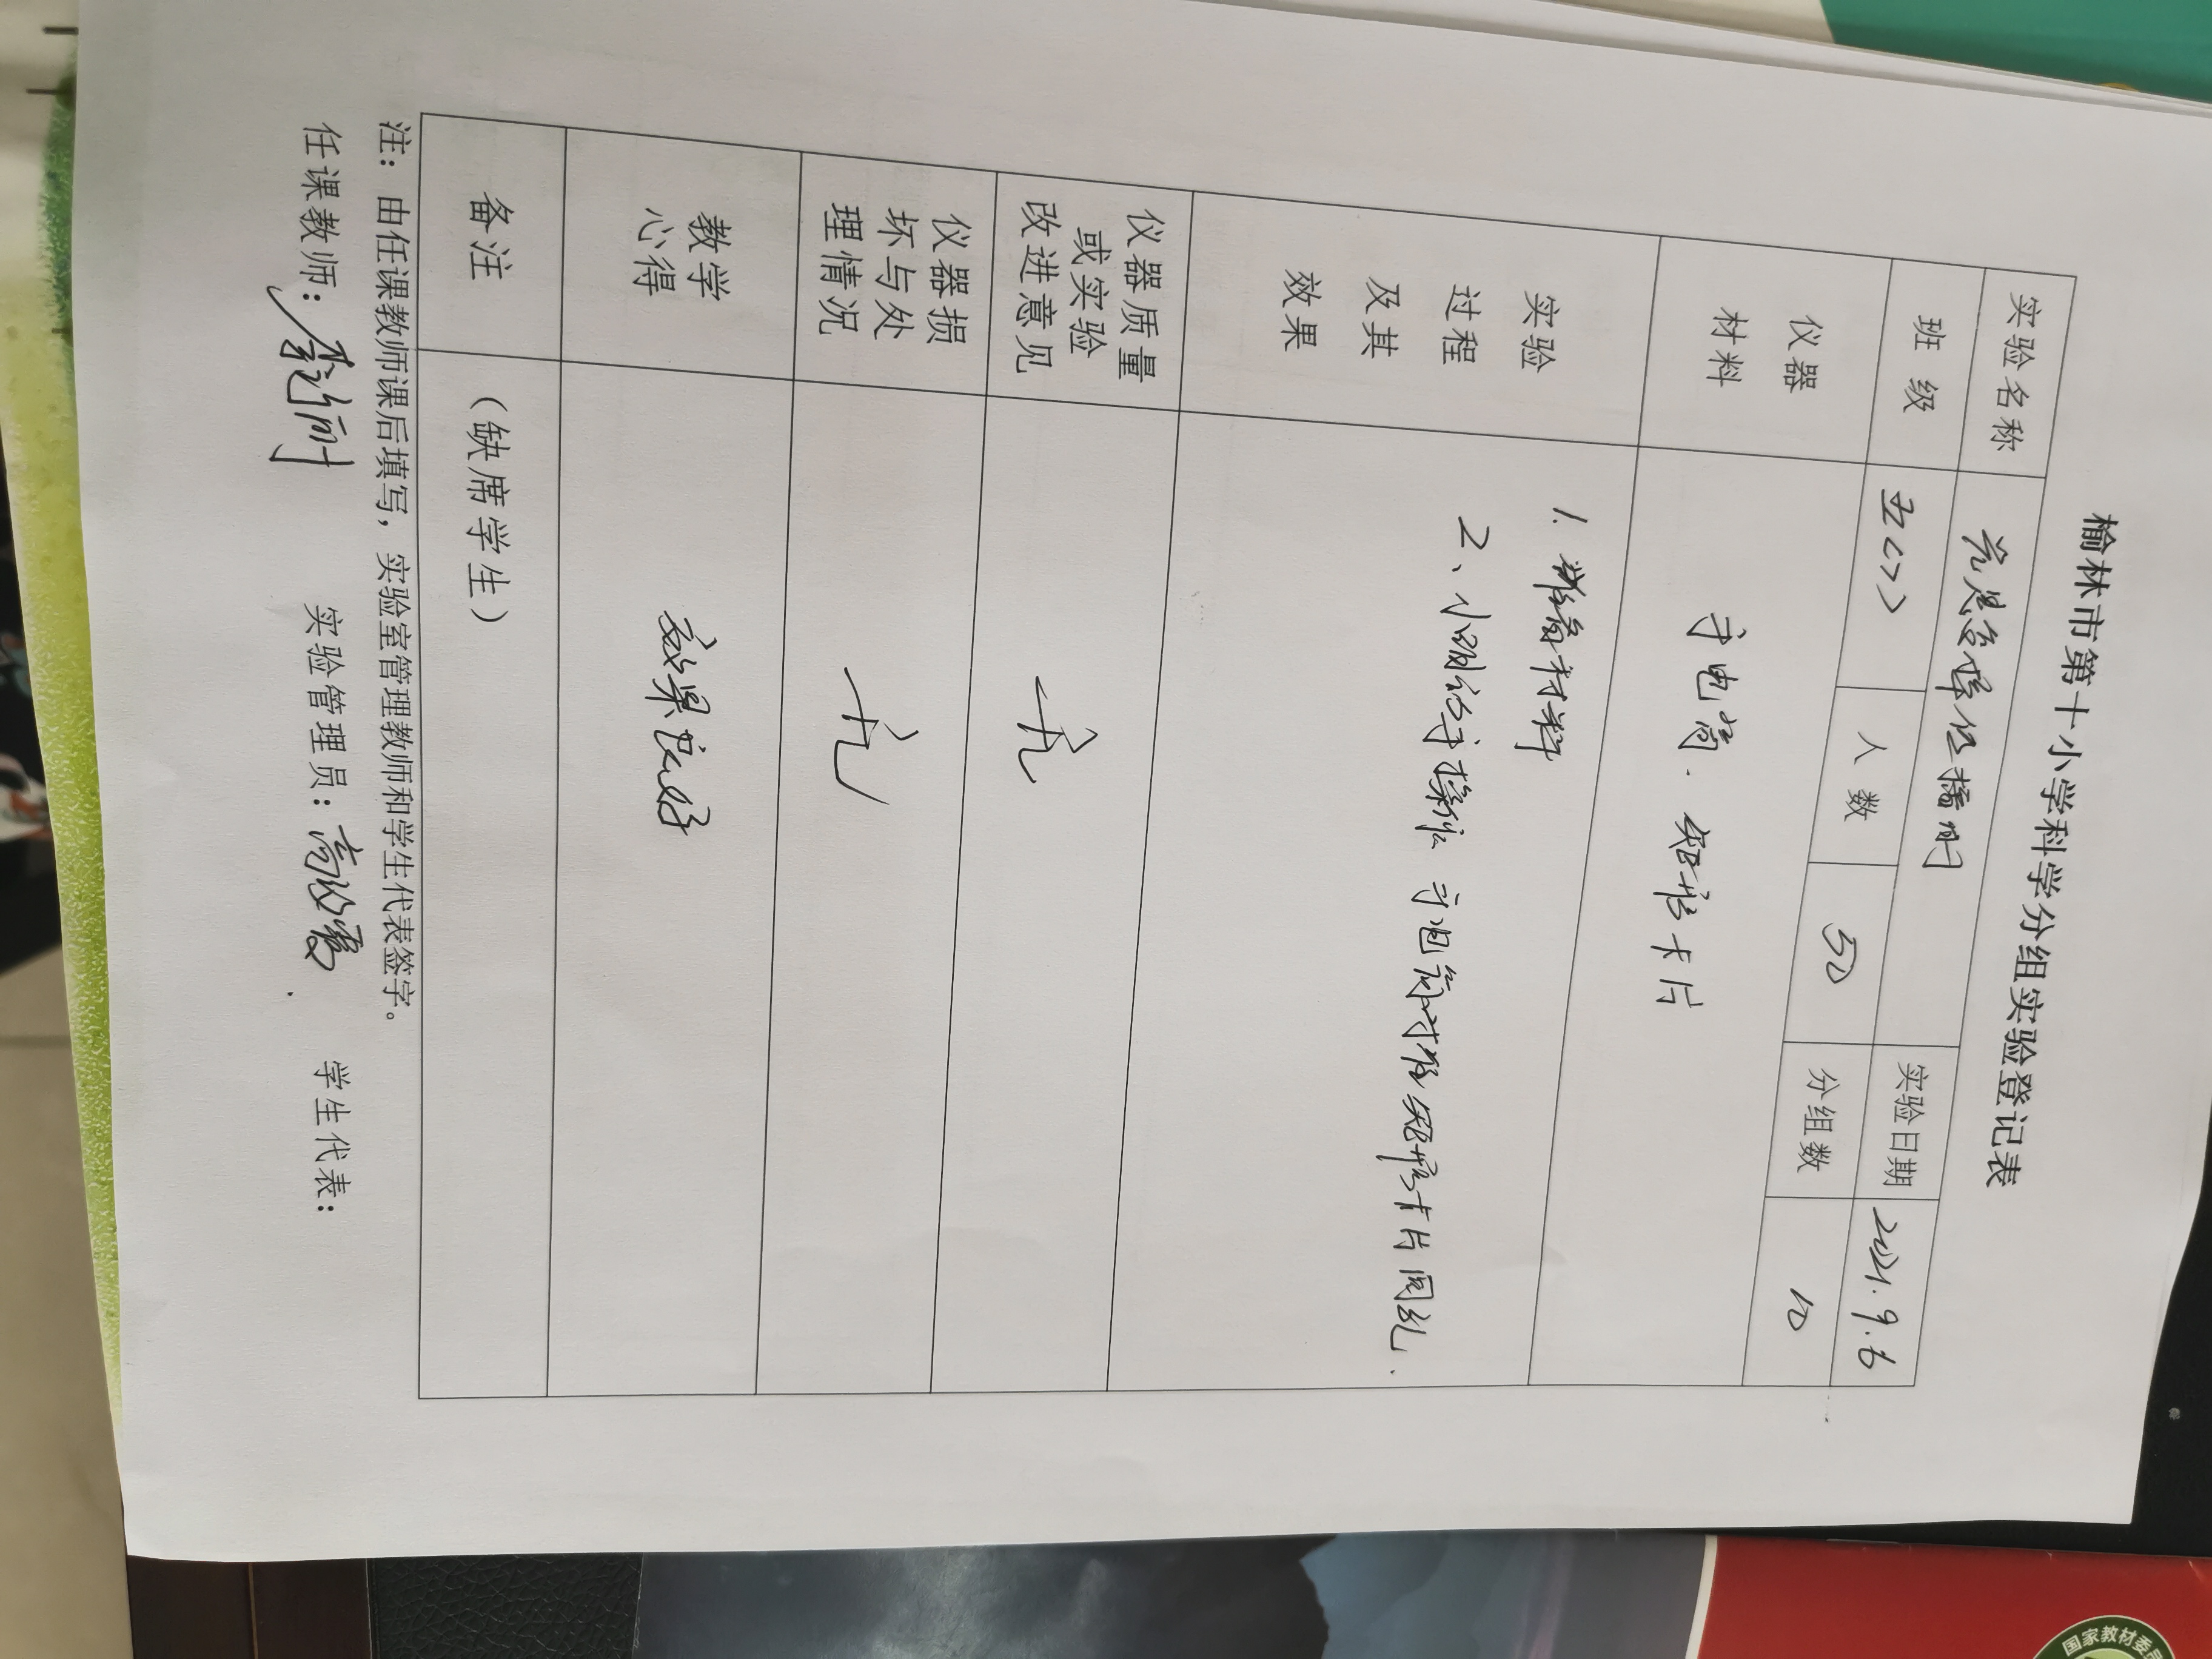 榆林市第十小学科学分组实验登记表
实验名称 光是怎样传播的 实验日期 2021.9.6
班 级 五<7> 人 数 50 分组数 10
仪器 材料 手电筒.矩形卡片
实验 过程 及其 效果
1.准备材料
2、小明的手操作 手电筒对准矩形卡片圆孔.
仪器质量 或实验 改进意见 无
仪器损 坏与处 理情况 无
教学 心得 效果良好
备注 (缺席学生)
注:由任课教师课后填写,实验室管理教师和学生代表签字。
任课教师: 实验管理员: 学生代表:
国家教材委员